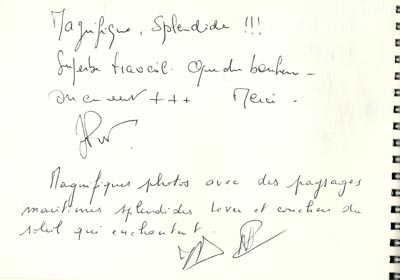 Magnifique, Splendide !!!
Superbe travail. Que du bonheur -
on en veut +++ Merci.
Magnifiques photos avec des paysages
maritimes splendides lever et couchers du
soleil qui enchantent.